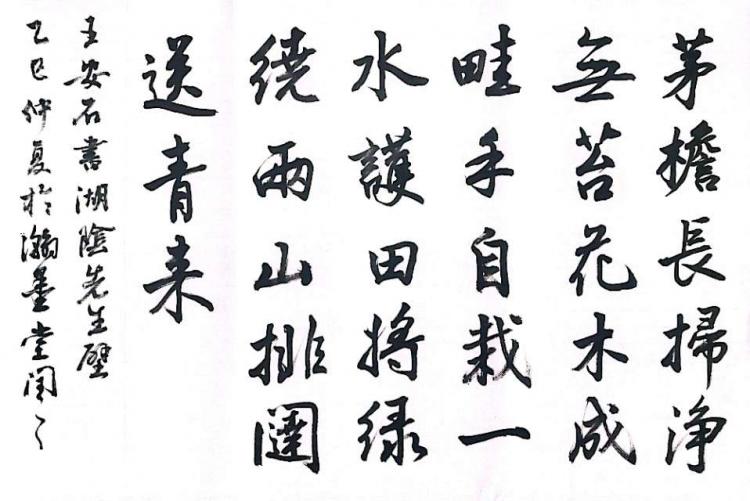 茅檐長掃淨
無苔花木成
畦手自栽一
水護田將绿
繞兩山排闥
送青来
王安石書湖陰先生壁
乙巳仲夏於瀚墨堂闰〻